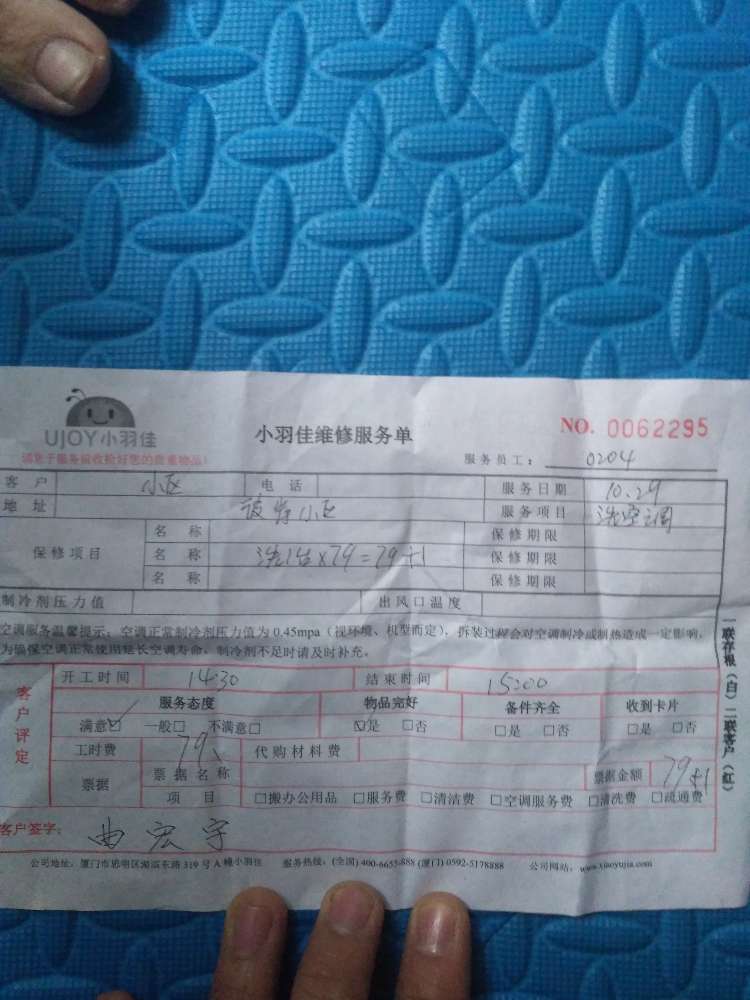 UJOY小羽佳
小羽佳维修服务单
NO. 0062295
请您于服务前收拾好您的贵重物品!
服务员工: 0204
客户 小区 电话 服务日期 10.29
地址 小区 服务项目 洗空调
保修项目 名称 保修期限
名称 洗1台×79=79+1 保修期限
名称 保修期限
制冷剂压力值 出风口温度
空调服务温馨提示: 空调正常制冷剂压力值为0.45mpa(视环境、机型而定), 拆装过程会对空调制冷或制热造成一定影响,
为确保空调正常使用延长空调寿命, 制冷剂不足时请及时补充。
客户评定
开工时间 14:30 结束时间 15:00
服务态度 物品完好 备件齐全 收到卡片
满意☑ 一般□ 不满意□ ☑是 □否 □是 □否 □是 □否
工时费 79 代购材料费
票据 票据名称 票据金额 79+1
项目 □搬办公用品 □服务费 □清洁费 □空调服务费 □清洗费 □疏通费
客户签字: 曲宏宇
公司地址: 厦门市思明区湖滨东路319号A幢小羽佳 服务热线: (全国)400-6655-888 (厦门)0592-5178888 公司网站: www.xiaoyujia.com
一联存根(白) 二联客户(红)